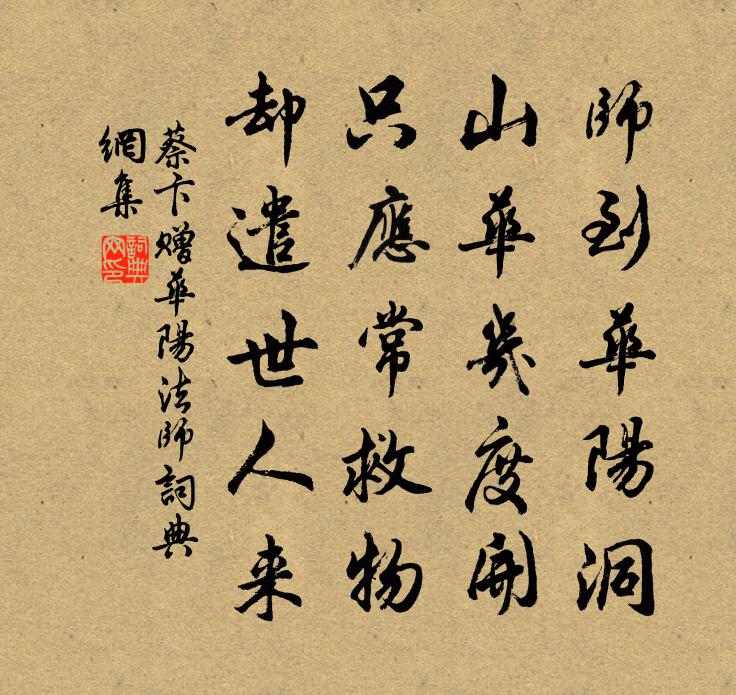 師到華陽洞
山華幾度開
只應常救物
却遣世人来
蔡卞贈華陽法師詞典
網集
詞典
网印